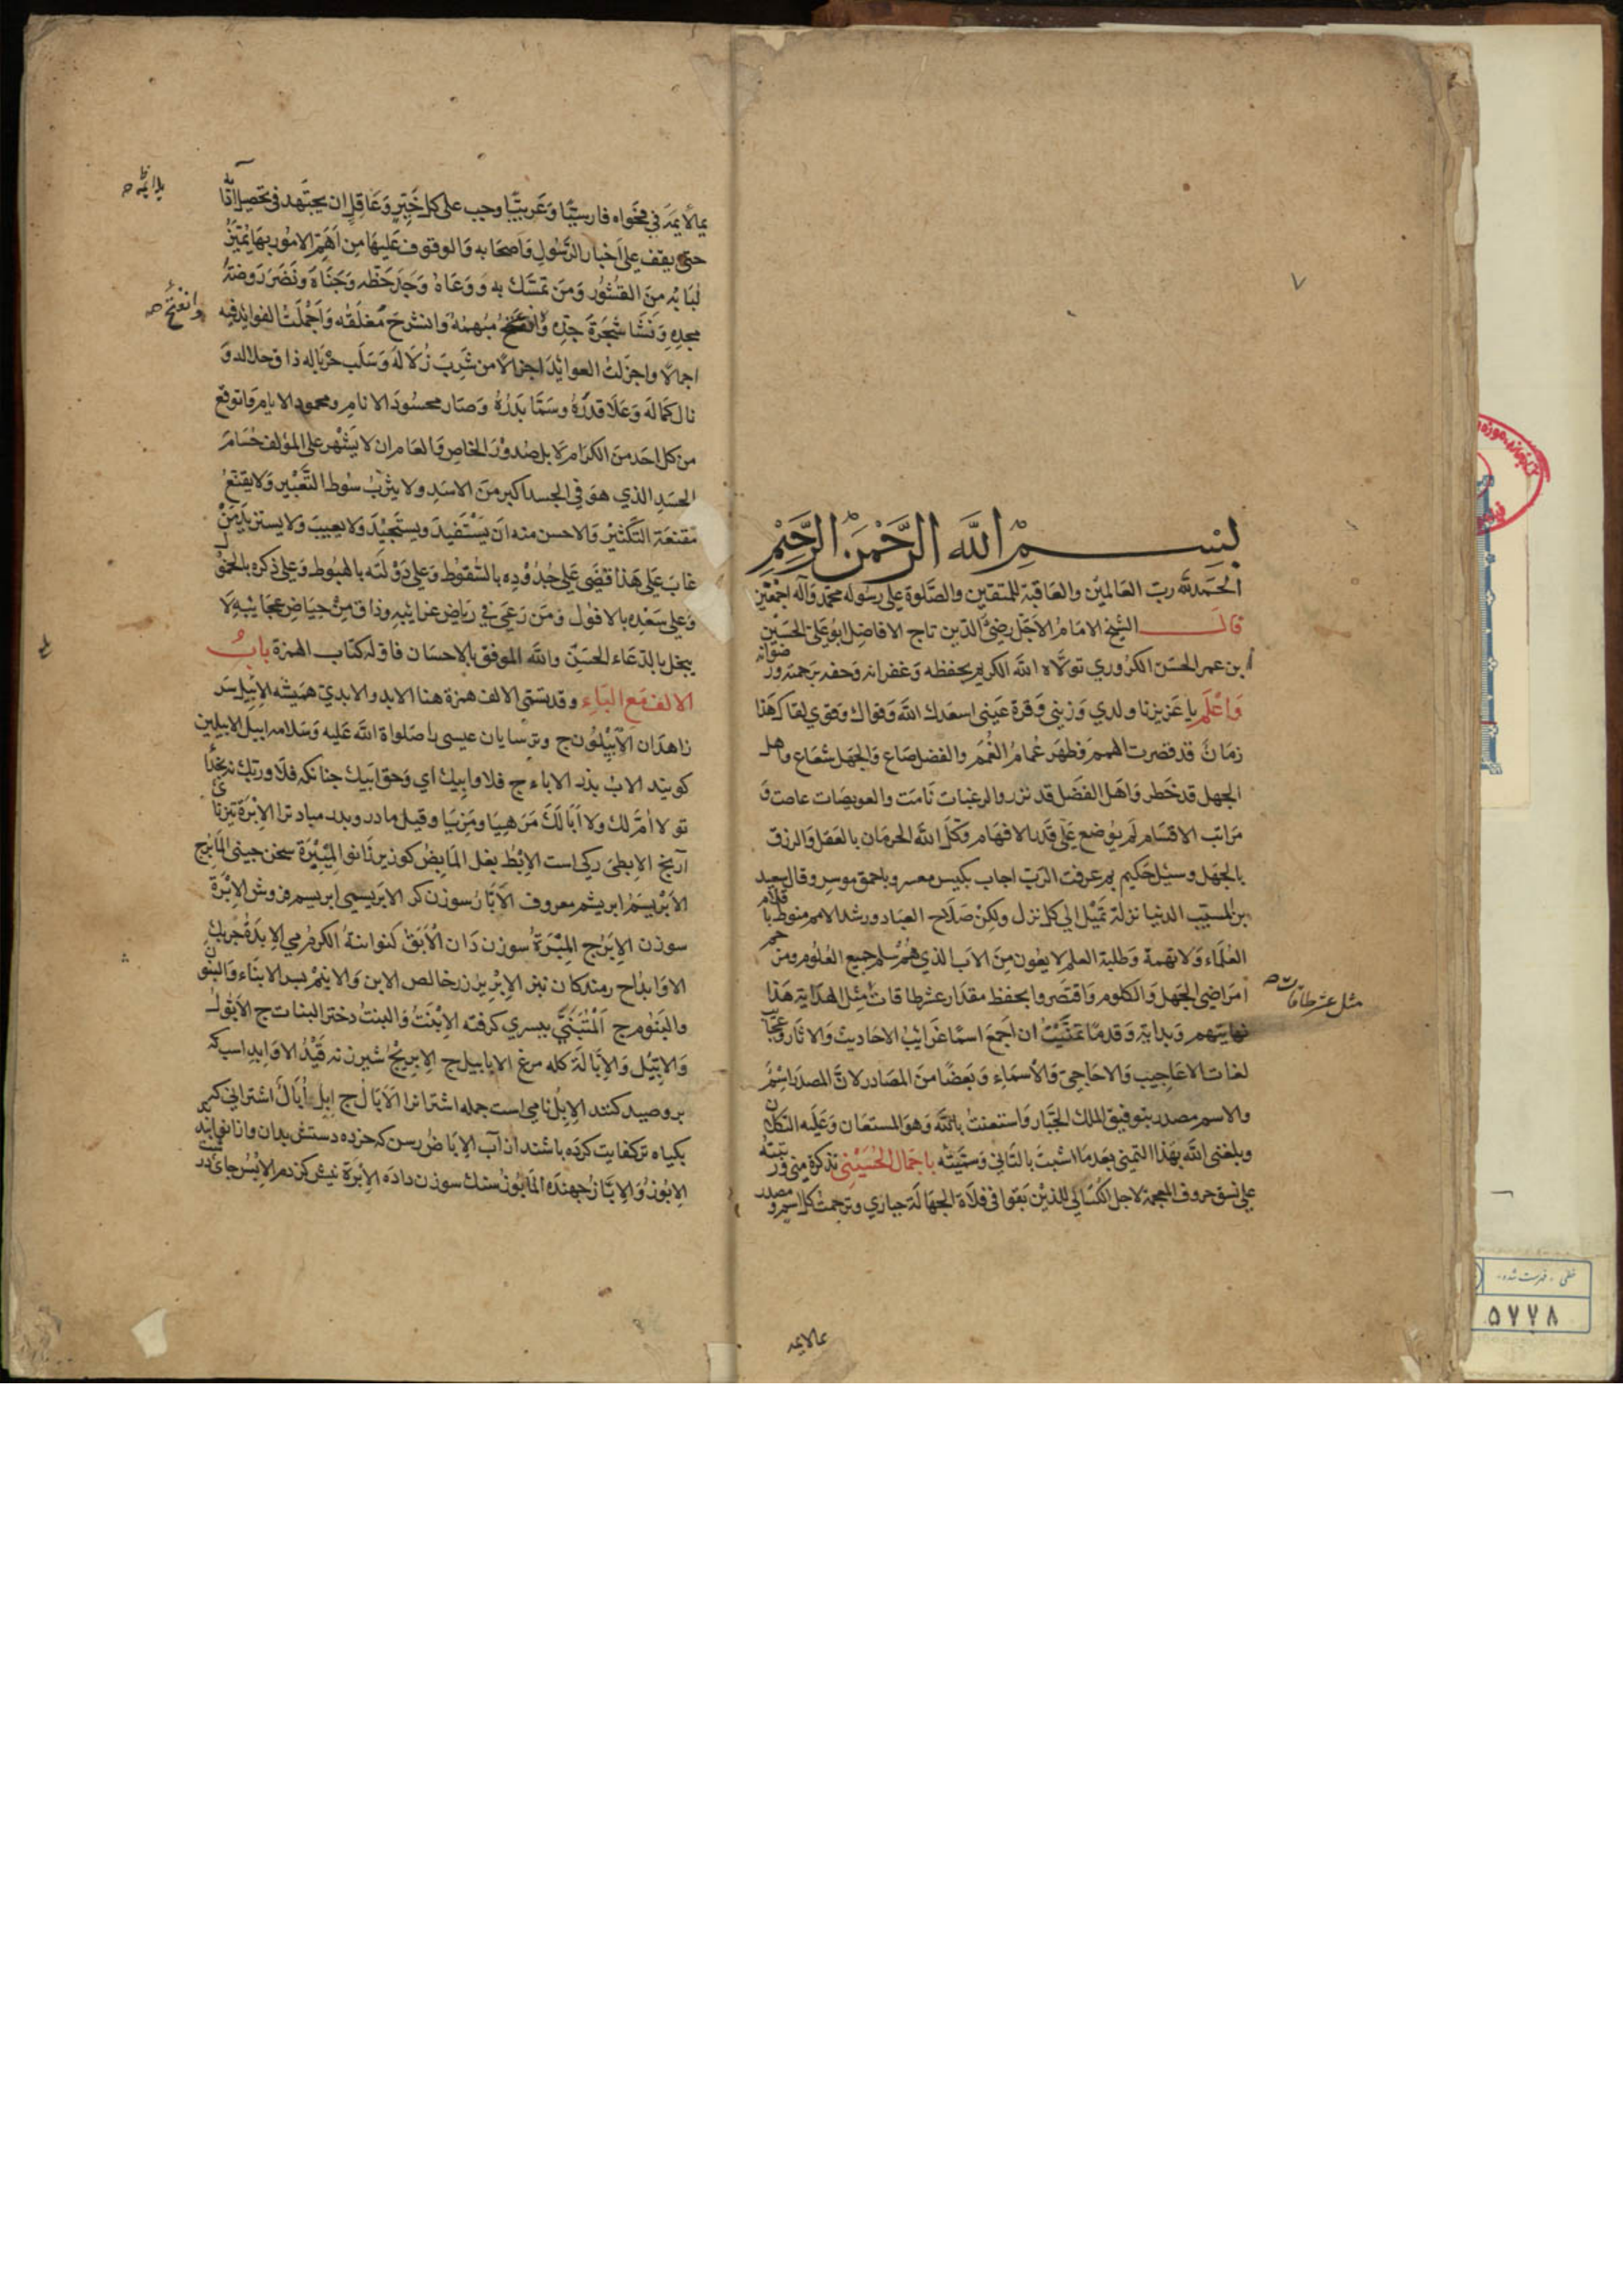 بسم الله الرحمن الرحيم
الحمد لله رب العالمين والعاقبة للمتقين والصلوة على رسوله محمد وآله اجمعين
قال الشيخ الامام الاجل رضى الدين تاج الافاضل ابو على الحسين
بن عمر الحسن الكروري تولاه الله الكريم بحفظه وغفرانه وحفه برحمته ورضوانه
واعلم يا عزيزنا ولدي وزيني وقرة عيني اسعدك الله وقواك وقوي لقاك هذا
زمان قد قصرت الهمم وظهر غمام الغمم والفضل ضاع والجهل شعاع واهل
الجهل قد خطر واهل الفضل قد نزر والرغبات نامت والعويصات عاصت و
مراتب الاقسام لم يوضع على قدر الافهام وكل الله الحرمان بالعقل والرزق
بالجهل وسئل حكيم بم عرفت الرب اجاب بكيس معسر وباحمق موسر وقال سعيد
بن المسيب الدنيا نزلة تميل الى كل نزل ولكن صلاح العباد ورشد الامم منوط باقلام
العلماء ولا تهمة وطلبة العلم لا يعون من الاب الذي هم سلم جميع العلوم ومن
امراضى الجهل والكلوم واقتصروا بحفظ مقدار عشر طاقات مثل الهداية هذا
مثل عشر طاقات صح
نهايتهم وبداية وقدما تمنيت ان اجمع اسما غرايب الاحاديث والاثار و
لغات الاعاجيب والاحاجي والأسماء وبعضا من المصادر لان المصدر اسم
والاسم مصدر بتوفيق الملك الجبار واستعنت بالله وهو المستعان وعليه التكلان
وبلغنى الله بهذا التمنى بعد ما اشبت بالتانى وسميته باجمال الحسيني تذكرة مني ورتبته
على نسق حروف المعجمة لاجل الكسالى للذين بقوا في فلاة الجهالة حيارى وترجمت كل اسم ومصدر
بمالايمه
بمالايمه في فحواه فارسيا وعربيا وجب على كل خبير وعاقل ان يجتهد في تحصيل
حتى يقف على اخبار الرسول واصحابه والوقوف عليها من اهم الامور بها يتميز
لبابه من القشور ومن تمسك به ووعاه وجد حظه وجناه ونضر روضة
مجده ونشا شجرة جده وانفتح مبهمه وانشرح مغلقه واجملت الفوايد فيه
وانفتح صح
اجمالا واجزلت العوائد اجزالا من شرب زلاله وسلب جرياله ذاق حلاله و
نال كماله وعلا قدره وسما بدره وصار محسود الانام ومحمود الايام واتوقع
من كل احد من الكرام لا بل صدور الخاص والعام ان لا يشهر على المؤلف حسام
الحسد الذي هو في الجسد اكبر من الاسد ولا يثرب سوط التعبير ولا يقنع
مقنعة التكثير والاحسن منه ان يستفيد ويستجيد ولا يعيب ولا يستزيد من
غاب على هذا قضى على جدوده بالسقوط وعلى دولته بالهبوط وعلى ذكره بالخمول
وعلى سعده بالافول ومن رعى في رياض غرايبه وذاق من حياض عجايبه لا
يبخل بالدعاء للحسين والله الموفق بالاحسان فاوله كتاب الهمزة باب
الالف مع الباء وقد يسمى الالف همزة هنا الابد والابدي هميشه الابيل سر
زاهدان الابيلون ج وترسايان عيسى را صلواة الله عليه وسلامه ابيل الابيلين
كويند الاب پدر الاباء ج فلا وابيك اي وحق ابيك چنانكه فلا وربك
تو لا ام لك ولا ابا لك وقيل مادر وپدر مباد ترا الابرة
آرنج الابطى ركى است الابط بغل المابض كو زير زانو المئبرة سخن چينى المآبر ج
الابريسم ابريشم معروف الابار سوزن كر الابريسمى ابريسم فروش الابرة
سوزن الابر ج المئبرة سوزن دان الابق
الاوابد ج رمندكان الابريز زر خالص الابن والابنم پسر الابناء والبنون
والبنوم ج المتبنى بپسري كرفته الابنة والبنت دختر البنات ج الابول
والابيل والابالة كله مرغ الابابيل ج قيد الاوابد اسب كه
برو صيد كنند الابل نامى است جمله اشتر انرا الآبال ج ابل ابال اشترانى كه
بكياه تر كفايت كرده باشند از آب الاباض رسن كه خرده دستش بدان
الابوز والاباز جهنده المابوز سك سوزن داده الابرة نيش كژدم
خطى - فهرست شده
۵۷۷۸